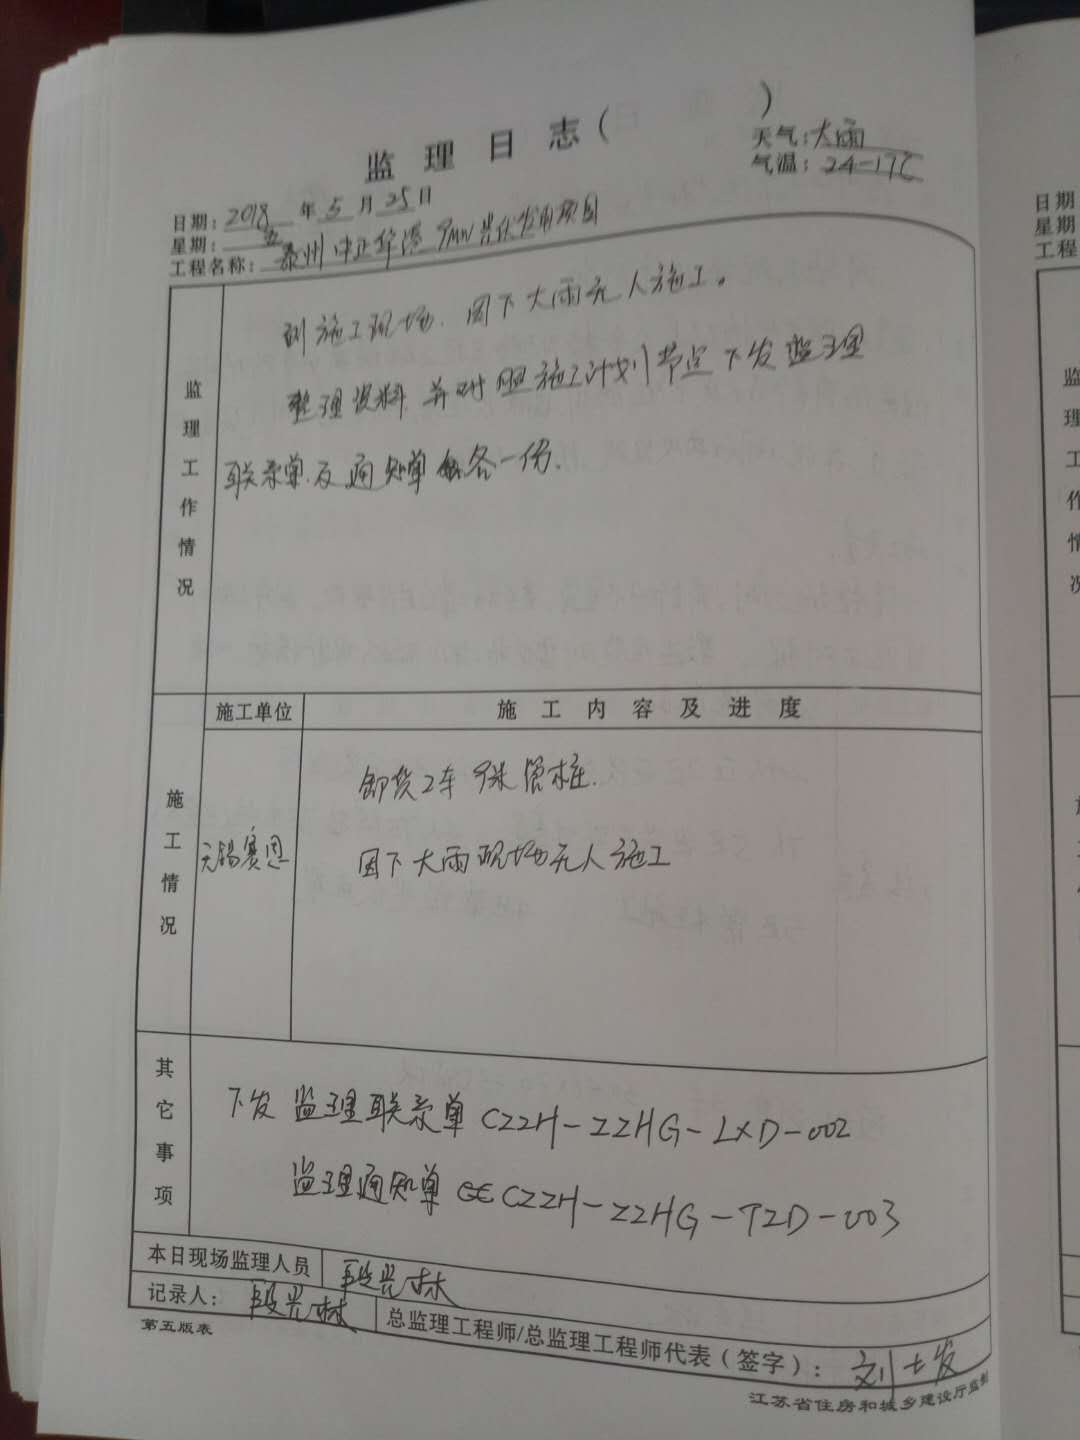 监理日志(　　)
天气:大雨
气温:24-17℃
日期:2018年5月25日
星期:五
工程名称:泰州中正华港9MW光伏发电项目
监理工作情况
到施工现场.因下大雨无人施工。
整理资料 并对照施工计划节点下发监理
联系单及通知单各一份.
施工单位
施工内容及进度
施工情况
无锡赛恩
卸货2车 9米管桩.
因下大雨现场无人施工
其它事项
下发 监理联系单CZZH-ZZHG-LXD-002
监理通知单CZZH-ZZHG-TZD-003
本日现场监理人员 段光林
记录人: 段光林
总监理工程师/总监理工程师代表(签字): 刘士发
第五版表
江苏省住房和城乡建设厅监制
日期
星期
工程
监
理
工
作
情
况